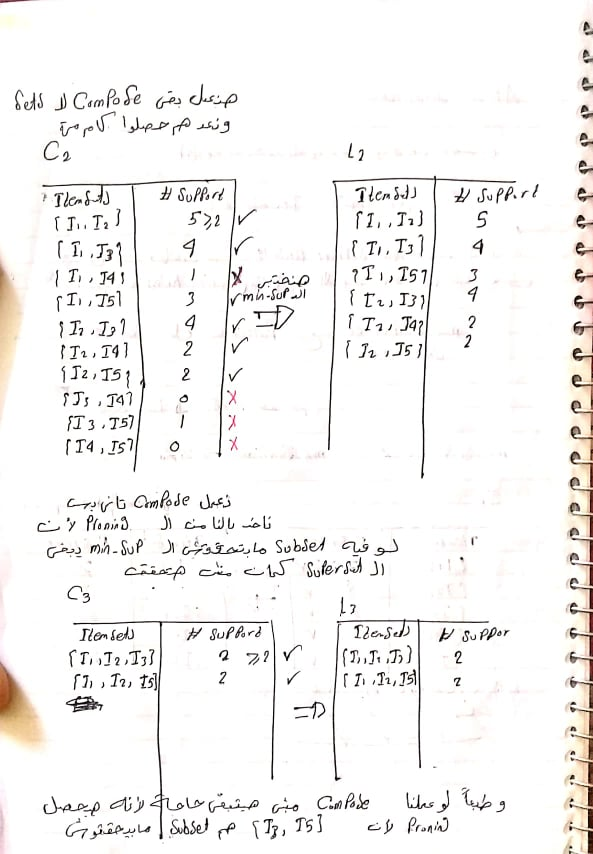 هنعمل بقى Compose لل Sets
ونعد هم حصلوا كام مرة
C2
ItemSets # Support
{I1, I2} 5 ≥ 2 ✓
{I1, I3} 4 ✓
{I1, I4} 1 X
{I1, I5} 3 ✓
{I2, I3} 4 ✓
{I2, I4} 2 ✓
{I2, I5} 2 ✓
{I3, I4} 0 X
{I3, I5} 1 X
{I4, I5} 0 X
ال min-sup
⇒
L2
ItemSets # Support
{I1, I2} 5
{I1, I3} 4
{I1, I5} 3
{I2, I3} 4
{I2, I4} 2
{I2, I5} 2
نعمل Compose تاني بس
ناخد بالنا من ال Pruning لأن
لو فيه Subset مابتحققوش ال min-sup يبقى
ال Superset كمان مش هتحققه
C3
ItemSets # Support
{I1, I2, I3} 2 ≥2 ✓
{I1, I2, I5} 2 ✓
⇒
L3
ItemSets # Suppor
{I1, I2, I3} 2
{I1, I2, I5} 2
وطبعاً لو عملنا Compose مش هيتبقى حاجة لأنه هيحصل
Pruning لأن {I3, I5} هم Subset مابيحققوش